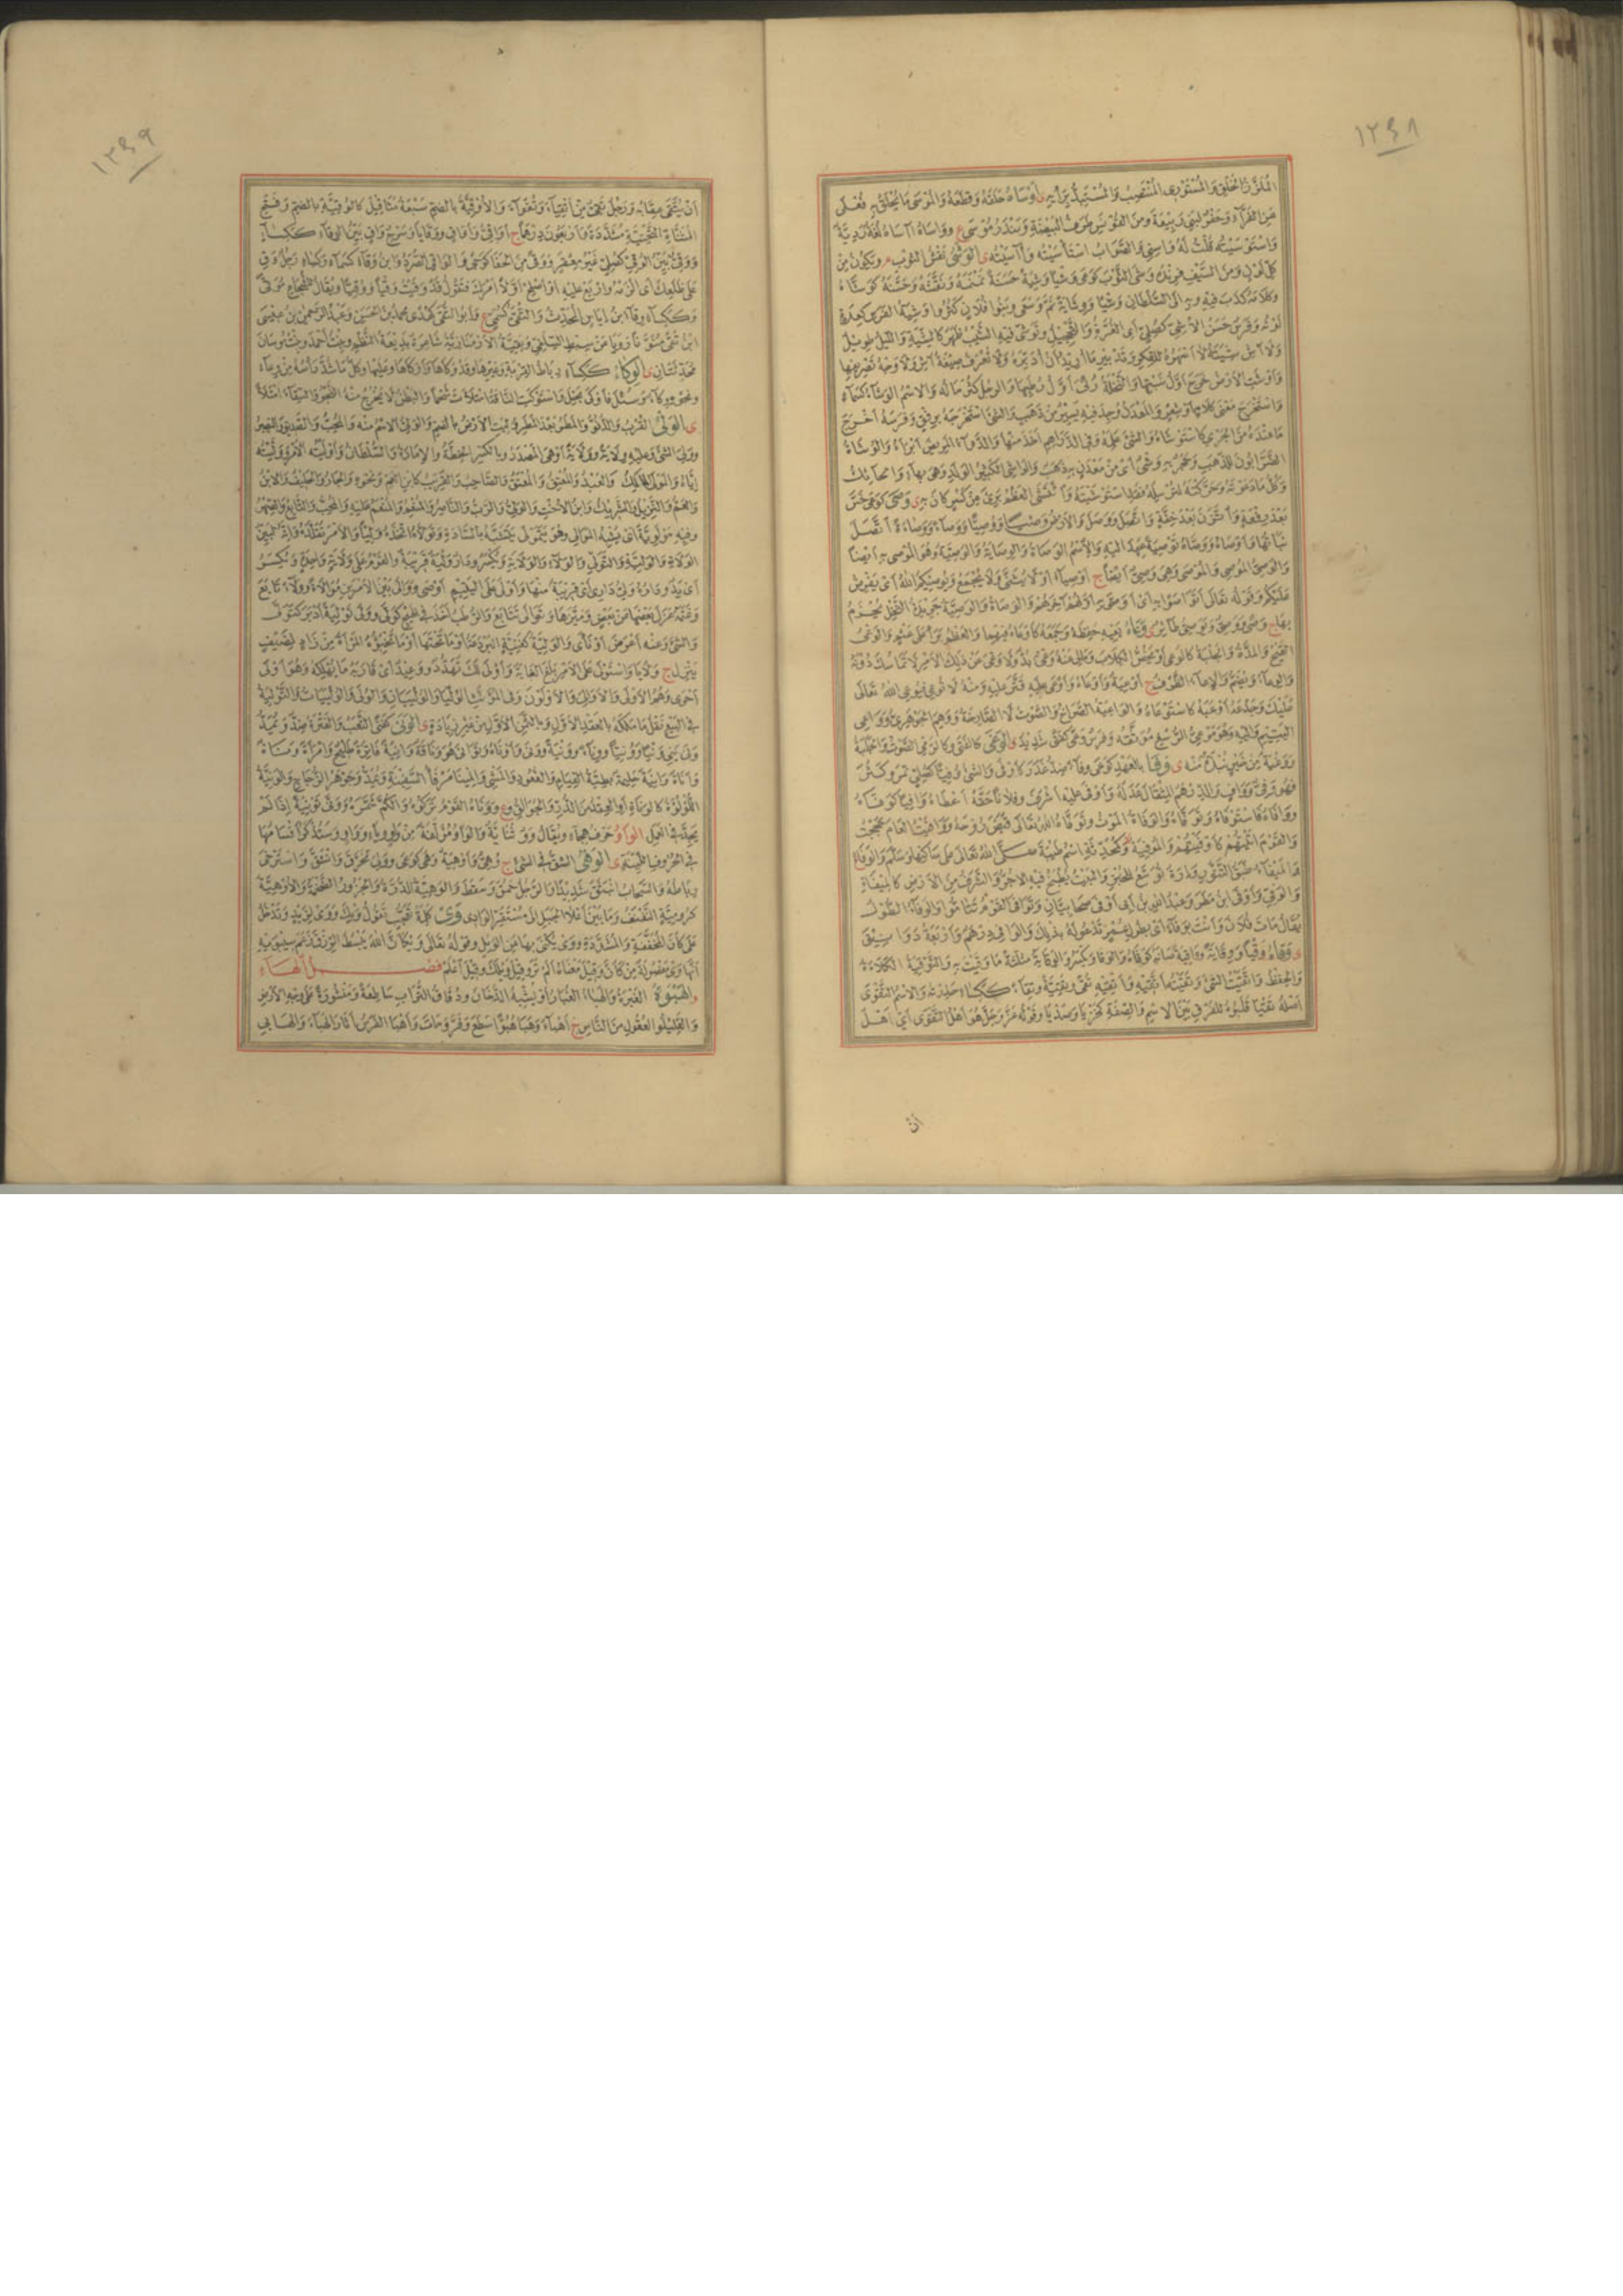 ١٢٤٨
المُلَزَّزُ الخَلْقِ وَالمُسْتَوْزِى المُنْتَصِبُ وَالمُسْتَبِدُّ بِرَأْيِهِ ى أَوْسَاهُ حَلَقَهُ وَقَطَعَهُ وَالمُوسَى مَا يُحْلَقُ بِهِ فُعْلَى
عَنِ الفَرَّاءِ وَحَفْرٌ لِبَنِى رَبِيعَةَ وَمِنَ القَوْنَسِ طَرَفُ البَيْضَةِ وَبَنْدَرُ مُوسَى ع وَوَاسَاهُ آسَاهُ لُغَةٌ رَدِيَّةٌ
وَاسْتَوْسَيْتُهُ قُلْتُ لَهُ وَاسِنِى وَالصَّوَابُ اسْتَأْسَيْتُهُ وَآسَيْتُهُ ى الوَشْىُ نَقْشُ الثَّوْبِ م وَيَكُونُ مِنْ
كُلِّ لَوْنٍ وَمِنَ السَّيْفِ فِرِنْدُهُ وَشَى الثَّوْبَ كَوَعَى وَشْيًا وَشِيَةً حَسَنَةً نَمْنَمَهُ وَنَقَشَهُ وَحَسَّنَهُ كَوَشَّاهُ
وَكَلَامَهُ كَذَبَ فِيهِ وَبِهِ إِلَى السُّلْطَانِ وَشْيًا وَوِشَايَةً نَمَّ وَسَعَى وَبَنُوا فُلَانٍ كَثُرُوا وَشِيَةُ الفَرَسِ كَعِدَةٍ
لَوْنُهُ وَفَرَسٌ حَسَنُ الأُشِىِّ كَصُلِىٍّ أَىِ الغُرَّةِ وَالتَّحْجِيلِ وَتَوَشَّى فِيهِ الشَّيْبُ ظَهَرَ كَالشِّيَةِ وَاللَّيْلُ طَوِيلٌ
وَلَا آشِ شِيَتَهُ لَا أَسْهَرُهُ لِلْفِكْرِ وَتَدْبِيرِ مَا أُرِيدُ أَنْ أُدَبِّرَهُ وَلَا تُعْرَفُ صِيغَةُ آشِ وَلَا وَجْهُ تَصْرِيفِهَا
وَأَوْشَتِ الأَرْضُ خَرَجَ أَوَّلُ نَبْتِهَا وَالنَّخْلَةُ رُئِىَ أَوَّلُ رُطَبِهَا وَالرَّجُلُ كَثُرَ مَالُهُ وَالاِسْمُ الوَشَاءُ كَسَمَاءٍ
وَاسْتَخْرَجَ مَعْنَى كَلَامٍ أَوْ شِعْرٍ وَالمَعْدِنُ وُجِدَ فِيهِ يَسِيرٌ مِنْ ذَهَبٍ وَالشَّىْءَ اسْتَخْرَجَهُ بِرِفْقٍ وَفَرَسَهُ أَخْرَجَ
مَا عِنْدَهُ مِنَ الجَرْىِ كَاسْتَوْشَاهُ وَالشَّىْءَ عَلِمَهُ وَفِى الدَّرَاهِمِ أَخَذَ مِنْهَا وَالدَّوَاءُ المَرِيضَ أَبْرَأَهُ وَالوُشَاةُ
الضَّرَّابُونَ لِلذَّهَبِ وَحَجَرٌ بِهِ وَشْىٌ أَىْ مِنْ مَعْدِنٍ بِهِ ذَهَبٌ وَالوَاشِى الكَثِيرُ الوَلَدِ وَهِىَ بِهَاءٍ وَالحَائِكُ
وَكُلُّ مَا دَعَوْتَهُ وَحَرَّكْتَهُ لِتُرْسِلَهُ فَقَدِ اسْتَوْشَيْتَهُ وَائْتَشَى العَظْمُ بَرَئَ مِنْ كَسْرٍ كَانَ بِهِ ى وَصَى كَوَعَى خَسَّ
بَعْدَ رِفْعَةٍ وَاتَّزَنَ بَعْدَ خِفَّةٍ وَاتَّصَلَ وَوَصَلَ وَالأَرْضُ وَصْيًا وَوُصِيًّا وَوَصَاءً وَوَصَاءَةً اتَّصَلَ
نَبَاتُهَا وَأَوْصَاهُ وَوَصَّاهُ تَوْصِيَةً عَهِدَ إِلَيْهِ وَالاِسْمُ الوَصَاةُ وَالوِصَايَةُ وَالوَصِيَّةُ وَهُوَ المُوصَى بِهِ أَيْضًا
وَالوَصِىُّ المُوصِى وَالمُوصَى وَهِىَ وَصِىٌّ أَيْضًا ج أَوْصِيَاءُ أَوْ لَا يُثَنَّى وَلَا يُجْمَعُ وَيُوصِيكُمُ اللهُ أَىْ يَفْرِضُ
عَلَيْكُمْ وَقَوْلُهُ تَعَالَى أَتَوَاصَوْا بِهِ أَىْ أَوْصَى بِهِ أَوَّلُهُمْ آخِرَهُمْ وَالوَصَاةُ وَالوَصِيَّةُ جَرِيدَةُ النَّخْلِ يُحْزَمُ
بِهَا ج وَصًى وَوَصِىٌّ وَيُوصِىٌّ طَائِرٌ ى وَعَاهُ يَعِيهِ حَفِظَهُ وَجَمَعَهُ كَأَوْعَاهُ فِيهِمَا وَالعَظْمُ بَرَأَ عَلَى عَثْمٍ وَالوَعْىُ
القَيْحُ وَالمِدَّةُ وَالجَلَبَةُ كَالوَعَى أَوْ يَخُصُّ الكِلَابَ وَمَالِى عَنْهُ وَعْىٌ بُدٌّ وَلَا وَعْىَ عَنْ ذٰلِكَ الأَمْرِ لَا تَمَاسُكَ دُونَهُ
وَالوِعَاءُ وَيُضَمُّ وَالإِعَاءُ الظَّرْفُ ج أَوْعِيَةٌ وَأَوْعَاهُ وَأَوْعَى عَلَيْهِ قَتَّرَ عَلَيْهِ وَمِنْهُ لَا تُوعِى فَيُوعِىَ اللهُ تَعَالَى
عَلَيْكِ وَجَدَعَهُ أَوْعَبَهُ كَاسْتَوْعَاهُ وَالوَاعِيَةُ الصُّرَاخُ وَالصَّوْتُ لَا الصَّارِخَةُ وَوَهِمَ الجَوْهَرِىُّ وَوَاعِى
اليَتِيمِ وَالِيهِ وَهُوَ مَوْعِىُّ الرُّسْغِ مُوَثَّقُهُ وَفَرَسٌ وَعًى كَفَتًى شَدِيدٌ ى الوَغَى كَالفَتَى وَكَالرَّمْىِ الصَّوْتُ وَالجَلَبَةُ
وَوَغْيَةٌ مِنْ خَيْرٍ نُبْذَةٌ مِنْهُ ى وَفَى بِالعَهْدِ كَوَعَى وَفَاءً ضِدُّ غَدَرَ كَأَوْفَى وَالشَّىْءُ وُفِيًّا كَصُلِىٍّ تَمَّ وَكَثُرَ
فَهُوَ وَفِىٌّ وَوَافٍ وَالدِّرْهَمُ المِثْقَالَ عَدَلَهُ وَأَوْفَى عَلَيْهِ أَشْرَفَ وَفُلَانًا حَقَّهُ أَعْطَاهُ وَافِيًا كَوَفَّاهُ
وَوَافَاهُ فَاسْتَوْفَاهُ وَتَوَفَّاهُ وَالوَفَاةُ المَوْتُ وَتَوَفَّاهُ اللهُ تَعَالَى قَبَضَ رُوحَهُ وَوَافَيْتُ العَامَ حَجَجْتُ
وَالقَوْمَ أَتَيْتُهُمْ كَأَوْفَيْتُهُمْ وَالمُوفِيَةُ كَمُحَدِّثَةٍ اسْمُ طَيْبَةَ صَلَّى اللهُ تَعَالَى عَلَى سَاكِنِهَا وَسَلَّمَ وَالوَفَاءُ ع
وَالمِيفَاءُ طَبَقُ التَّنُّورِ وَإِرَةٌ تُوَسَّعُ لِلْخُبْزِ وَالبَيْتُ يُطْبَخُ فِيهِ الآجُرُّ وَالشَّرَفُ مِنَ الأَرْضِ كَالمِيفَاةِ
وَالوَفْىِ وَأَوْفَى ابْنُ مَطَرٍ وَعَبْدُ اللهِ بْنُ أَبِى أَوْفَى صَحَابِيَّانِ وَتَوَافَى القَوْمُ تَتَامُّوا وَالوَفَاءُ الطُّولُ
يُقَالُ مَاتَ فُلَانٌ وَأَنْتَ بِوَفَاءٍ أَىْ بِطُولِ عُمُرٍ تَدْعُو لَهُ بِذٰلِكَ وَالوَافِى دِرْهَمٌ وَأَرْبَعَةُ دَوَانِيقَ
ى وَقَاهُ وَقْيًا وَوِقَايَةً وَوَاقِيَةً صَانَهُ كَوَقَّاهُ وَالوَقَاءُ وَيُكْسَرُ وَالوَقَايَةُ مُثَلَّثَةً مَا وَقَيْتَ بِهِ وَالتَّوْقِيَةُ الكِلَاءَةُ
وَالحِفْظُ وَاتَّقَيْتُ الشَّىْءَ وَتَقَيْتُهُ أَتَّقِيهِ وَأَتْقِيهِ تُقًى وَتَقِيَّةً وَتِقَاءً كَكِسَاءٍ حَذِرْتُهُ وَالاِسْمُ التَّقْوَى
أَصْلُهُ تَقْيَا قَلَبُوهُ لِلْفَرْقِ بَيْنَ الاِسْمِ وَالصِّفَةِ كَخَزْيَا وَصَدْيَا وَقَوْلُهُ عَزَّ وَجَلَّ هُوَ أَهْلُ التَّقْوَى أَىْ أَهْلُ
أن
١٢٤٩
أَنْ يُتَّقَى عِقَابُهُ وَرَجُلٌ تَقِىٌّ مِنْ أَتْقِيَاءَ وَتُقَوَاءَ وَالأُوقِيَّةُ بِالضَّمِّ سَبْعَةُ مَثَاقِيلَ كَالوُقِيَّةِ بِالضَّمِّ وَفَتْحِ
المُثَنَّاةِ التَّحْتِيَّةِ مُشَدَّدَةً وَأَرْبَعُونَ دِرْهَمًا ج أَوَاقِىُّ وَأَوَاقٍ وَوَقَايَا وَسَرْجٌ وَاقٍ بَيِّنُ الوِقَاءِ كَكِسَاءٍ
وَوَقِىٌّ بَيِّنُ الوُقِىِّ كَصُلِىٍّ غَيْرُ مِعْقَرٍ وَوَقَى مِنَ الحَفَا كَوَعَى وَالوَاقِى الصُّرَدُ وَابْنُ وَقَاءٍ كَسَمَاءٍ وَكِسَاءٍ رَجُلٌ وَقِ
عَلَى ظَلْعِكَ أَىِ الزَمْهُ وَارْبَعْ عَلَيْهِ أَوْ أَصْلِحْ أَوَّلًا أَمْرَكَ فَتَقُولُ قَدْ وَقَيْتُ وَقْيًا وَوُقِيًّا وَيُقَالُ لِلشُّجَاعِ مُوَقًّى
وَكَكِسَاءٍ وِقَاءُ بْنُ إِيَاسٍ المُحَدِّثُ وَالتُّقَىُّ كَسُمَىٍّ ع وَأَبُو التُّقَى كَهُدًى مُحَمَّدُ بْنُ الحَسَنِ وَعَبْدُ الرَّحْمٰنِ بْنُ عِيسَى
ابْنِ تُقًى مُنَوَّنًا رَوَيَا عَنْ سِبْطِ السِّلَفِىِّ وَتَقِيَّةُ الأَرْمَنَازِيَّةُ شَاعِرَةٌ بَدِيعَةُ النَّظْمِ وَبِنْتُ أَحْمَدَ وَبِنْتُ أَمُوسَانَ
مُحَدِّثَتَانِ ى الوِكَاءُ كَكِسَاءٍ رِبَاطُ القِرْبَةِ وَغَيْرِهَا وَقَدْ وَكَاهَا وَأَوْكَاهَا وَعَلَيْهَا وَكُلُّ مَا شُدَّ رَأْسُهُ مِنْ وِعَاءٍ
وَنَحْوِهِ وِكَاءٌ وَسُئِلَ فَأَوْكَى بَخِلَ وَاسْتَوْكَتِ النَّاقَةُ امْتَلَأَتْ شَحْمًا وَالبَطْنُ لَا يَخْرُجُ مِنْهُ النَّجْوُ وَالسِّقَاءُ امْتَلَأَ
ى الوَلْىُ القُرْبُ وَالدُّنُوُّ وَالمَطَرُ بَعْدَ المَطَرِ وُلِيَتِ الأَرْضُ بِالضَّمِّ وَالوَلِىُّ الاِسْمُ مِنْهُ وَالمُحِبُّ وَالصَّدِيقُ وَالنَّصِيرُ
وَوَلِىَ الشَّىْءَ وَعَلَيْهِ وِلَايَةً وَوَلَايَةً أَوْ هِىَ المَصْدَرُ وَبِالكَسْرِ الخُطَّةُ وَالإِمَارَةُ وَالسُّلْطَانُ وَأَوْلَيْتُهُ الأَمْرَ وَوَلَّيْتُهُ
إِيَّاهُ وَالمَوْلَى المَالِكُ وَالعَبْدُ وَالمُعْتِقُ وَالمُعْتَقُ وَالصَّاحِبُ وَالقَرِيبُ كَابْنِ العَمِّ وَنَحْوِهِ وَالجَارُ وَالحَلِيفُ وَالاِبْنُ
وَالعَمُّ وَالنَّزِيلُ وَالشَّرِيكُ وَابْنُ الأُخْتِ وَالوَلِىُّ وَالرَّبُّ وَالنَّاصِرُ وَالمُنْعِمُ وَالمُنْعَمُ عَلَيْهِ وَالمُحِبُّ وَالتَّابِعُ وَالصِّهْرُ
وَفِيهِ مَوْلَوِيَّةٌ أَىْ يُشْبِهُ المَوَالِى وَهُوَ يَتَمَوْلَى يَتَشَبَّهُ بِالسَّادَةِ وَتَوَلَّاهُ اتَّخَذَهُ وَلِيًّا وَالأَمْرَ تَقَلَّدَهُ وَإِنَّهُ لَبَيِّنُ
الوَلَاءَةِ وَالوَلِيَّةِ وَالتَّوَلِّى وَالوَلَاءِ وَالوَلَايَةِ وَتُكْسَرُ وَدَارٌ وَلِيَّةٌ قَرِيبَةٌ وَالقَوْمُ عَلَى وَلَايَةٍ وَاحِدَةٍ وَتُكْسَرُ
أَىْ يَدٌ وَدَارُهُ وَلْىُ دَارِى أَىْ قَرِيبَةٌ مِنْهَا وَأَوْلَى عَلَى اليَتِيمِ أَوْصَى وَوَالَى بَيْنَ الأَمْرَيْنِ مُوَالَاةً وَوِلَاءً تَابَعَ
وَغَنَمَهُ عَزَلَ بَعْضَهَا عَنْ بَعْضٍ وَمَيَّزَهَا وَتَوَالَى تَتَابَعَ وَالرُّطَبُ أَخَذَ فِى الهَيْجِ كَوَلَّى وَوَلَّى تَوْلِيَةً أَدْبَرَ كَتَوَلَّى
وَالشَّىْءَ وَعَنْهُ أَعْرَضَ أَوْ نَأَى وَالوَلِيَّةُ كَغَنِيَّةٍ البَرْذَعَةُ أَوْ مَا تَحْتَهَا أَوْ مَا تَخْبَؤُهُ المَرْأَةُ مِنْ زَادٍ لِضَيْفٍ
يَنْزِلُ ج وَلَايَا وَاسْتَوْلَى عَلَى الأَمْرِ بَلَغَ الغَايَةَ وَأَوْلَى لَكَ تَهَدُّدٌ وَوَعِيدٌ أَىْ قَارَبَهُ مَا يُهْلِكُهُ وَهُوَ أَوْلَى
أَحْرَى وَهُمُ الأَوْلَى وَالأَوَالِى وَالأَوْلَوْنَ وَفِى المُؤَنَّثِ الوُلْيَا وَالوُلْيَيَانِ وَالوُلَى وَالوُلْيَيَاتُ وَالتَّوْلِيَةُ
فِى البَيْعِ نَقْلُ مَا مَلَكَهُ بِالعَقْدِ الأَوَّلِ وَبِالثَّمَنِ الأَوَّلِ مِنْ غَيْرِ زِيَادَةٍ ى الوَنَى كَفَتًى التَّعَبُ وَالفَتْرَةُ ضِدٌّ وَيُمَدُّ
وَنَى يَنِى وَنْيًا وَوُنِيًّا وَوِنَاءً وَوِنْيَةً وَوَنًى وَأَوْنَاهُ وَتَوَانَى هُوَ وَنَاقَةٌ وَانِيَةٌ فَاتِرَةٌ طَلِيحٌ وَامْرَأَةٌ وَنَاةٌ
وَأَنَاةٌ وَآنِيَةٌ حَلِيمَةٌ بَطِيئَةُ القِيَامِ وَالقُعُودِ وَالمَشْىِ وَالمِينَا مَرْفَأُ السُّفُنِ وَيُمَدُّ وَجَوْهَرُ الزُّجَاجِ وَالوَنِيَّةُ
اللُّؤْلُؤَةُ كَالوَنَاةِ أَوِ العِقْدُ مِنَ الدُّرِّ وَالجُوَالِقُ ع وَوَنَاهُ القَوْمُ تَرَكُوهُ وَالكُمَّ شَمَّرَهُ وَوَنَّى تَوْنِيَةً إِذَا لَمْ
يَجِدَّ فِى العَمَلِ الوَاوُ حَرْفُ هِجَاءٍ وَيُقَالُ وَوْ ثُنَائِيَّةٌ وَالوَاوُ مُؤَلَّفَةٌ مِنْ وَاوٍ وَيَاءٍ وَوَاوٍ وَسَتُذْكَرُ أَقْسَامُهَا
فِى الحُرُوفِ اللَّيِّنَةِ ى الوَهْىُ الشَّقُّ فِى الشَّىْءِ ج وُهِىٌّ وَأَوْهِيَةٌ وَهَى كَوَعَى وَوَلِىَ تَخَرَّقَ وَانْشَقَّ وَاسْتَرْخَى
رِبَاطُهُ وَالسَّحَابُ انْبَثَقَ شَدِيدًا وَالرَّجُلُ حَمُقَ وَسَقَطَ وَالوَهِيَّةُ الدُّرَّةُ وَالجَزُورُ الضَّخْمَةُ وَالأُوهِيَّةُ
كَرُومِيَّةٍ النَّفْنَفُ وَمَا بَيْنَ أَعْلَا الجَبَلِ إِلَى مُسْتَقَرِّ الوَادِى وَىْ كَلِمَةُ تَعَجُّبٍ تَقُولُ وَيْكَ وَوَىْ لِزَيْدٍ وَتَدْخُلُ
عَلَى كَأَنِ المُخَفَّفَةِ وَالمُشَدَّدَةِ وَوَىْ يُكْنَى بِهَا عَنِ الوَيْلِ وَقَوْلُهُ تَعَالَى وَيْكَأَنَّ اللهَ يَبْسُطُ الرِّزْقَ زَعَمَ سِيبَوَيْهِ
أَنَّهَا وَىْ مَفْصُولَةٌ مِنْ كَأَنَّ وَقِيلَ مَعْنَاهُ أَلَمْ تَرَ وَقِيلَ وَيْلَكَ وَقِيلَ اعْلَمْ فَصْلُ الهَاءِ
و الهَبْوَةُ الغَبَرَةُ وَالهَبَاءُ الغُبَارُ أَوْ يُشْبِهُ الدُّخَانَ وَدُقَاقُ التُّرَابِ سَاطِعَةً وَمَنْثُورَةً عَلَى وَجْهِ الأَرْضِ
وَالقَلِيلُو العُقُولِ مِنَ النَّاسِ ج أَهْبَاءٌ وَهَبَا هُبُوًّا سَطَعَ وَفَرَّ وَمَاتَ وَأَهْبَا الفَرَسُ أَثَارَ الهَبَاءَ وَالهَابِى